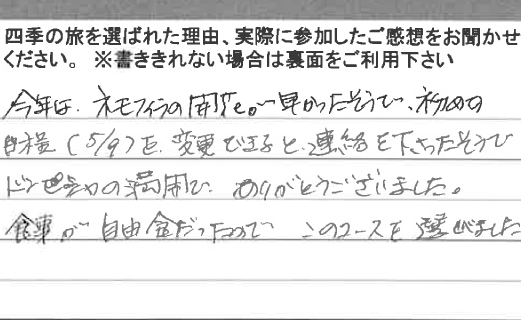 四季の旅を選ばれた理由、実際に参加したご感想をお聞かせ
ください。 ※書ききれない場合は裏面をご利用下さい
今年は、ネモフィラの開花が早かったそうで、初めの
日程（5/9）を、変更できると、連絡を下さったそうで
の満開で、ありがとうございました。
食事が自由食だったので このコースを選びました